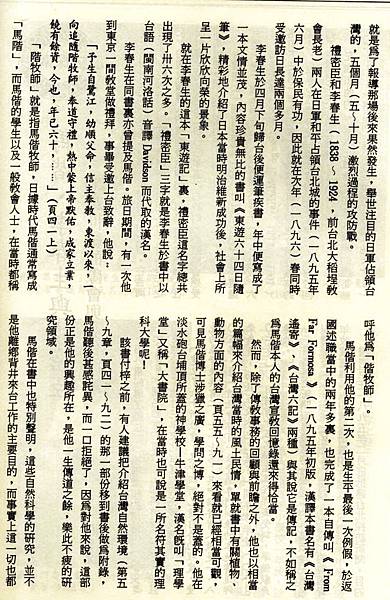 就是為了報導那場後來果然發生，舉世注目的日軍佔領台
灣的，五個月（五～十月）激烈過程的攻防戰。
禮密臣和李春生（1838～1924，前台北大稻埕教
會長老）兩人在日軍和平占領台北城的事件（一八九五年
六月）中於保民有功，因此就在次年（一八九六）春同時
受邀訪日長達兩個多月。
李春生於四月下旬歸台後便運筆疾書，年中便寫成了
一本文情並茂，內容珍貴無比的書叫《東遊六十四日隨
筆》，精彩地介紹了日本當時明治維新成功後，社會上所
呈一片欣欣向榮的景象。
就在李春生的這本「東遊記」裏，禮密臣這名字總共
出現了卅六次之多。「禮密臣」三字就是李春生於書中以
台語（閩南河洛話）音譯Davidson而代取的漢名。
李春生在同書裏亦曾提及馬偕，旅日期間，有一次他
到東京一間教堂做禮拜，事畢受邀上台致辭，他說：
「予生自鷺江，幼順父命，信主奉教，東渡以來，一
向追隨階牧師，奉道守禮，熱中蒙上帝默佑，成家立業，
饒有餘資，今也，年已六十，……」（頁四上）
「階牧師」就是指馬偕牧師，日據時代馬偕通常寫成
「馬階」，而馬偕的學生以及一般教會人士，在當時都稱
呼他為「偕牧師」。
馬偕利用他的第二次，也是生平最後一次例假，於返
國述職當中的兩年多裏，也完成了一本自傳叫《From
Far Formosa》（一八九五年初版，漢譯本書名有《台灣
遙寄》、《台灣六記》兩種）與其說它是傳記，不如稱之
為馬偕本人的台灣宣教回憶錄還來得恰當。
然而，除了傳教事務的回顧與前瞻之外，他也以相當
的篇幅來介紹台灣當時的風土民情，單就書中有關植物、
動物方面的內容（頁五五～九一）來看就已經相當可觀，
可見馬偕博士涉獵之廣，學問之博，絕對不是蓋的。他在
淡水砲台埔頂所蓋的神學校—牛津學堂，漢名既叫「理學
堂」又稱「大書院」，在當時也可說是一所名符其實的理
科大學呢！
該書付梓之前，有人建議把介紹台灣自然環境（第五
～九章，頁四一～九一）的那一部份移到書後做為附錄，
馬偕聽後甚感詫異，而一口拒絕了，因為對他來說，這部
份正是他的興趣所在，是他一生傳道之餘，樂此不疲的研
究領域。
馬偕在書中也特別聲明，這些自然科學的研究，並不
是他離鄉背井來台工作的主要目的，而事實上這一切也都